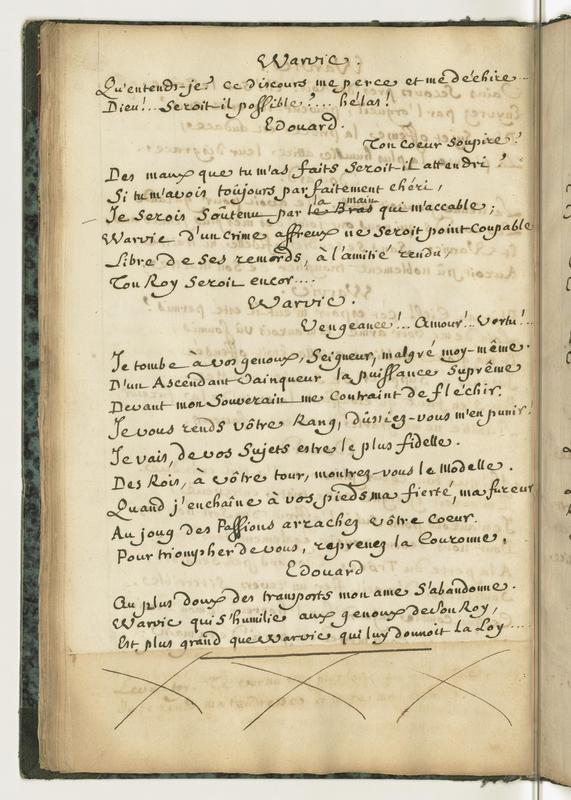 Warvic.
Qu'entends-je? ce discours me perce et me déchire...
Dieu!... Seroit-il possible?... hélas!
Edouard.
Ton coeur soupire?
Des maux que tu m'as faits Seroit-il attendri?
Si tu m'avois toûjours parfaitement chéri,
la main
Je Serois Soûtenu par le Bras qui m'accable;
Warvic d'un crime affreux ne Seroit point Coupable
Libre de Ses remords, à l'amitié rendu,
Ton Roy Seroit encor....
Warvic.
Vengeance!... Amour!.. Vertu!..
Je tombe à vos genoux, Seigneur, malgré moy-même.
D'un Ascendant Vainqueur la puissance Suprême
Devant mon Souverain me Contraint de fléchir.
Je vous rends vôtre Rang, dûssiez-vous m'en punir!
Je vais, de vos Sujets estre le plus fidelle.
Des Rois, à vôtre tour, montrez-vous le Modelle.
Quand j'enchaîne à vos pieds ma fierté, ma fureur
Au joug des Passions arrachez vôtre Coeur.
Pour triompher de vous, reprenez la Couronne.
Edouard
Au plus doux des transports mon ame S'abandonne.
Warvic qui S'humilie aux genoux de Son Roy,
Est plus grand que Warvic qui luy donnoit La Loy...